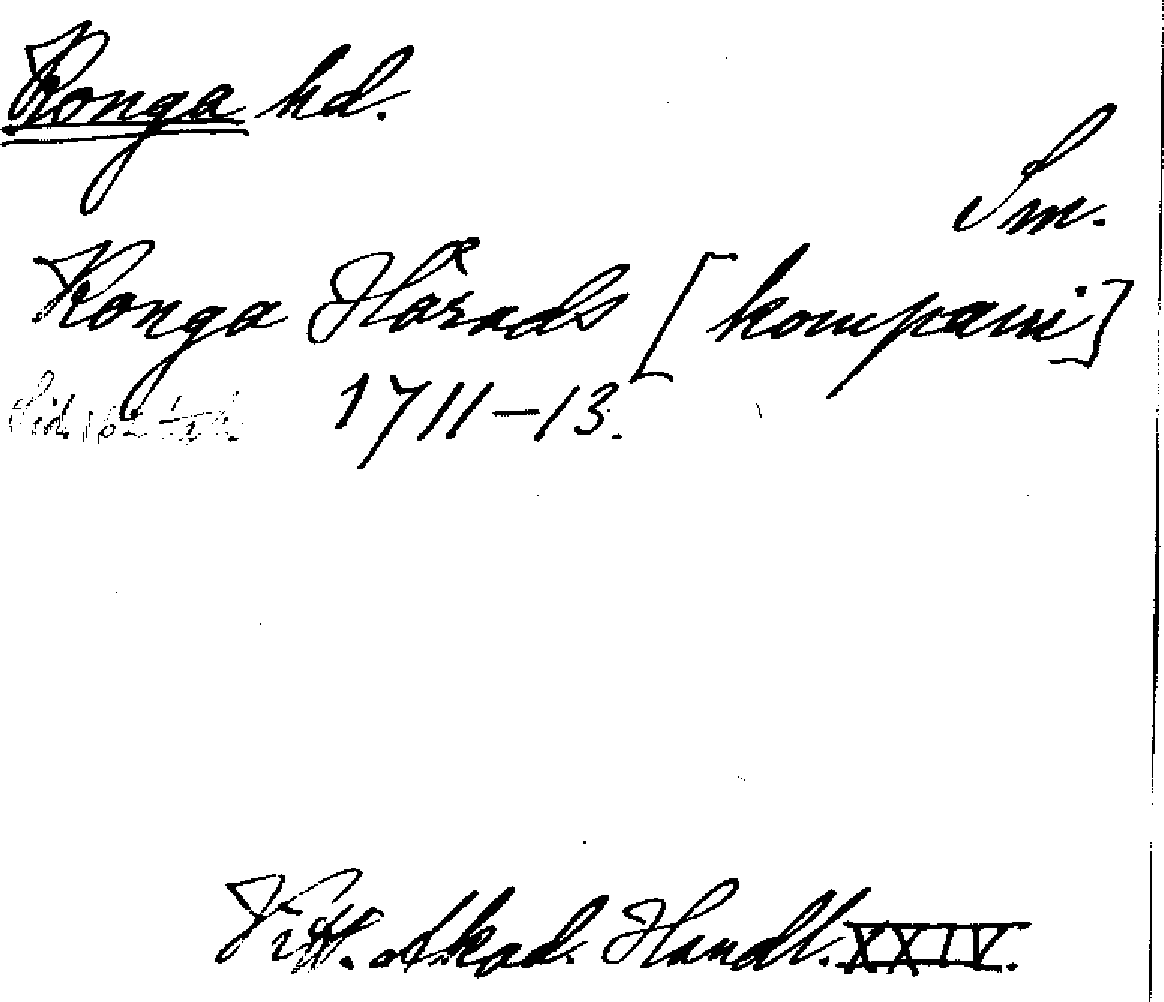 Konga hd.
Sm.
Konga Härads [kompani]
1711-13.
Sid. 162
Vitt. Akad. Handl. XXIV.